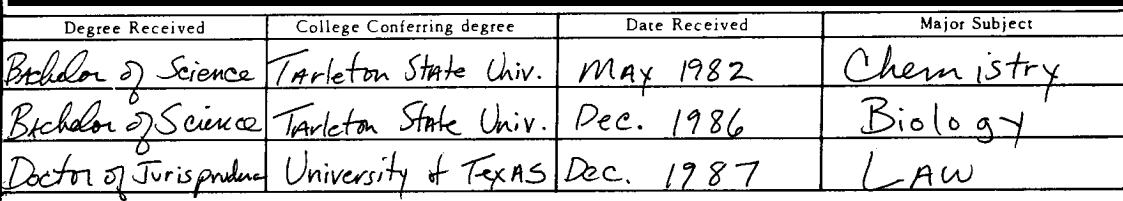 Degree Received College Conferring degree Date Received Major Subject
Bachelor of Science Tarleton State Univ. May 1982 Chemistry
Bachelor of Science Tarleton State Univ. Dec. 1986 Biology
Doctor of Jurisprudence University of Texas Dec. 1987 Law